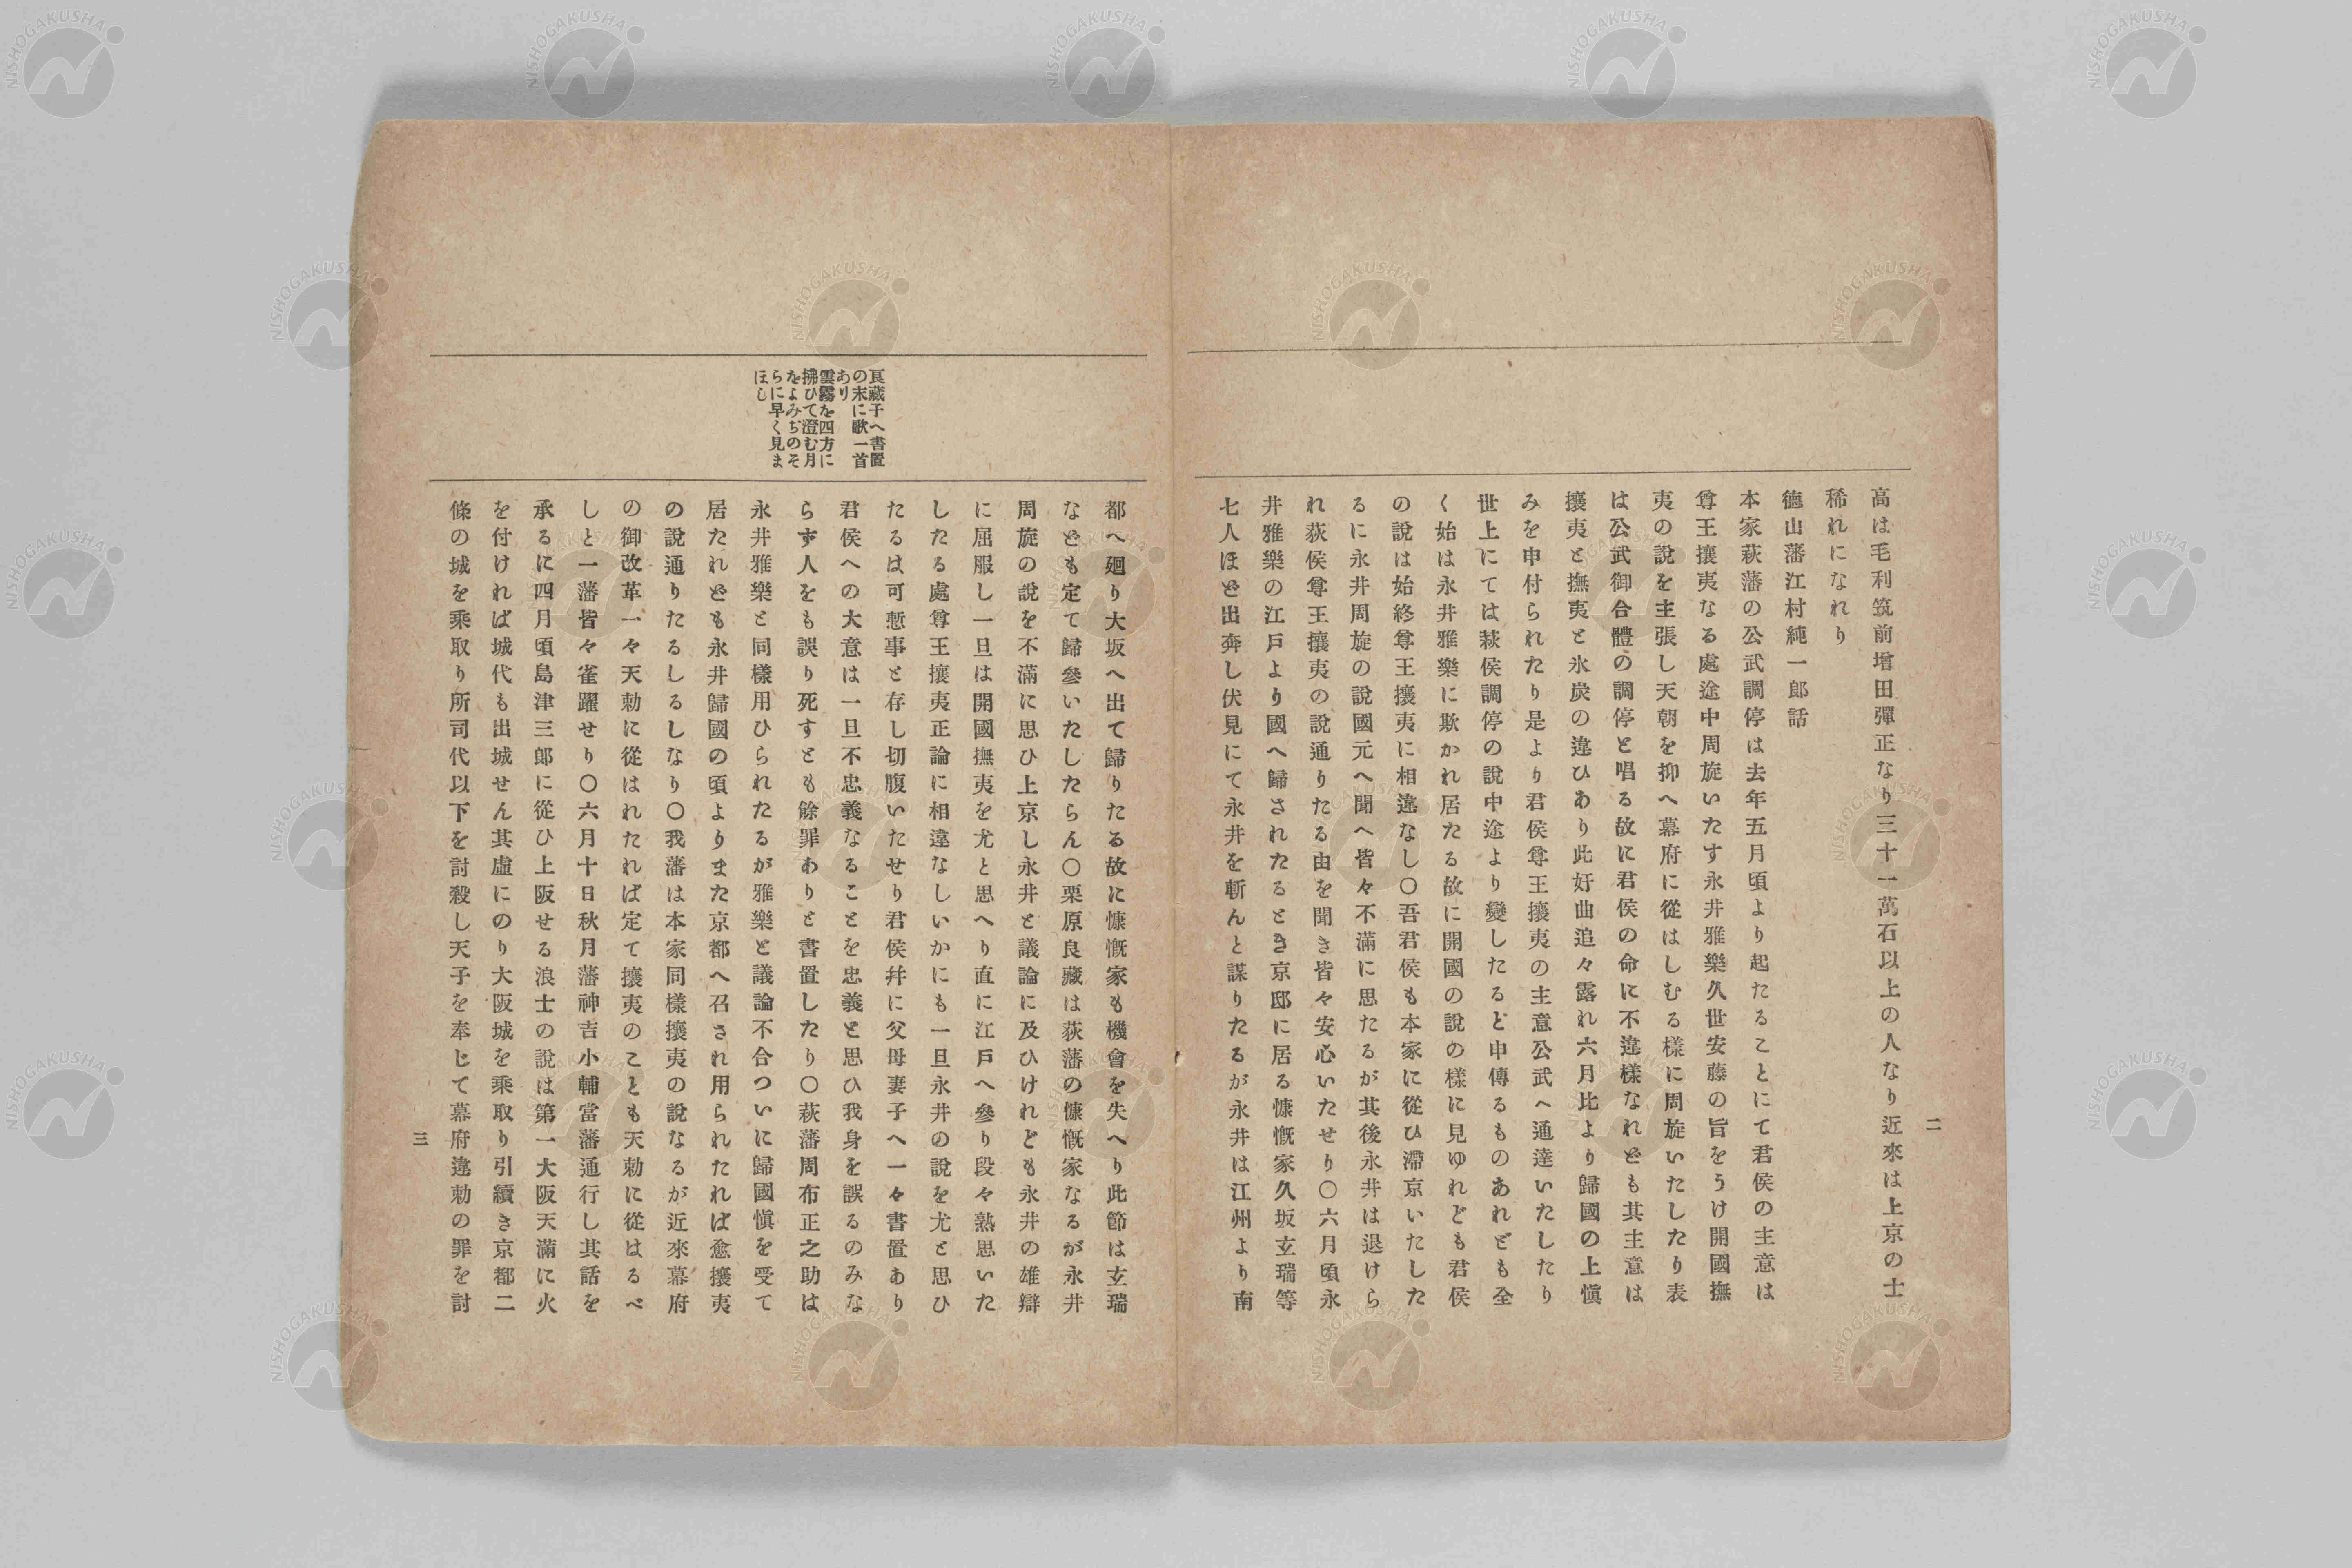 高は毛利筑前增田彈正なり三十一萬石以上の人なり近來は上京の士
稀れになれり
德山藩江村純一郎話
本家萩藩の公武調停は去年五月頃より起たることにて君侯の主意は
尊王攘夷なる處途中周旋いたす永井雅樂久世安藤の旨をうけ開國撫
夷の說を主張し天朝を抑へ幕府に從はしむる樣に周旋いたしたり表
は公武御合體の調停と唱る故に君侯の命に不違樣なれども其主意は
攘夷と撫夷と氷炭の違ひあり此奸曲追々露れ六月比より歸國の上愼
みを申付られたり是より君侯尊王攘夷の主意公武へ通達いたしたり
世上にては萩侯調停の說中途より變したると申傳るものあれども全
く始は永井雅樂に欺かれ居たる故に開國の說の樣に見ゆれども君侯
の說は始終尊王攘夷に相違なし〇吾君侯も本家に從ひ滯京いたした
るに永井周旋の說國元へ聞へ皆々不滿に思たるが其後永井は退けら
れ萩侯尊王攘夷の說通りたる由を聞き皆々安心いたせり〇六月頃永
井雅樂の江戶より國へ歸されたるとき京邸に居る慷慨家久坂玄瑞等
七人ほど出奔し伏見にて永井を斬んと謀りたるが永井は江州より南
二
良藏子へ書置
の末に歌一首
あり
雲霧を四方に
拂ひて澄む月
をよみぢのそ
らに早く見ま
ほし
都へ廻り大坂へ出て歸りたる故に慷慨家も機會を失へり此節は玄瑞
なども定て歸參いたしたらん〇栗原良藏は萩藩の慷慨家なるが永井
周旋の說を不滿に思ひ上京し永井と議論に及ひけれども永井の雄辯
に屈服し一旦は開國撫夷を尤と思へり直に江戶へ參り段々熟思いた
したる處尊王攘夷正論に相違なしいかにも一旦永井の說を尤と思ひ
たるは可慙事と存し切腹いたせり君侯幷に父母妻子へ一々書置あり
君侯への大意は一旦不忠義なることを忠義と思ひ我身を誤るのみな
らず人をも誤り死すとも餘罪ありと書置したり〇萩藩周布正之助は
永井雅樂と同樣用ひられたるが雅樂と議論不合ついに歸國愼を受て
居たれども永井歸國の頃よりまた京都へ召され用られたれば愈攘夷
の說通りたるしるしなり〇我藩は本家同樣攘夷の說なるが近來幕府
の御改革一々天勅に從はれたれば定て攘夷のことも天勅に從はるべ
しと一藩皆々雀躍せり〇六月十日秋月藩神吉小輔當藩通行し其話を
承るに四月頃島津三郎に從ひ上阪せる浪士の說は第一大阪天滿に火
を付ければ城代も出城せん其虛にのり大阪城を乘取り引續き京都二
條の城を乘取り所司代以下を討殺し天子を奉じて幕府違勅の罪を討
三
NISHOGAKUSHA